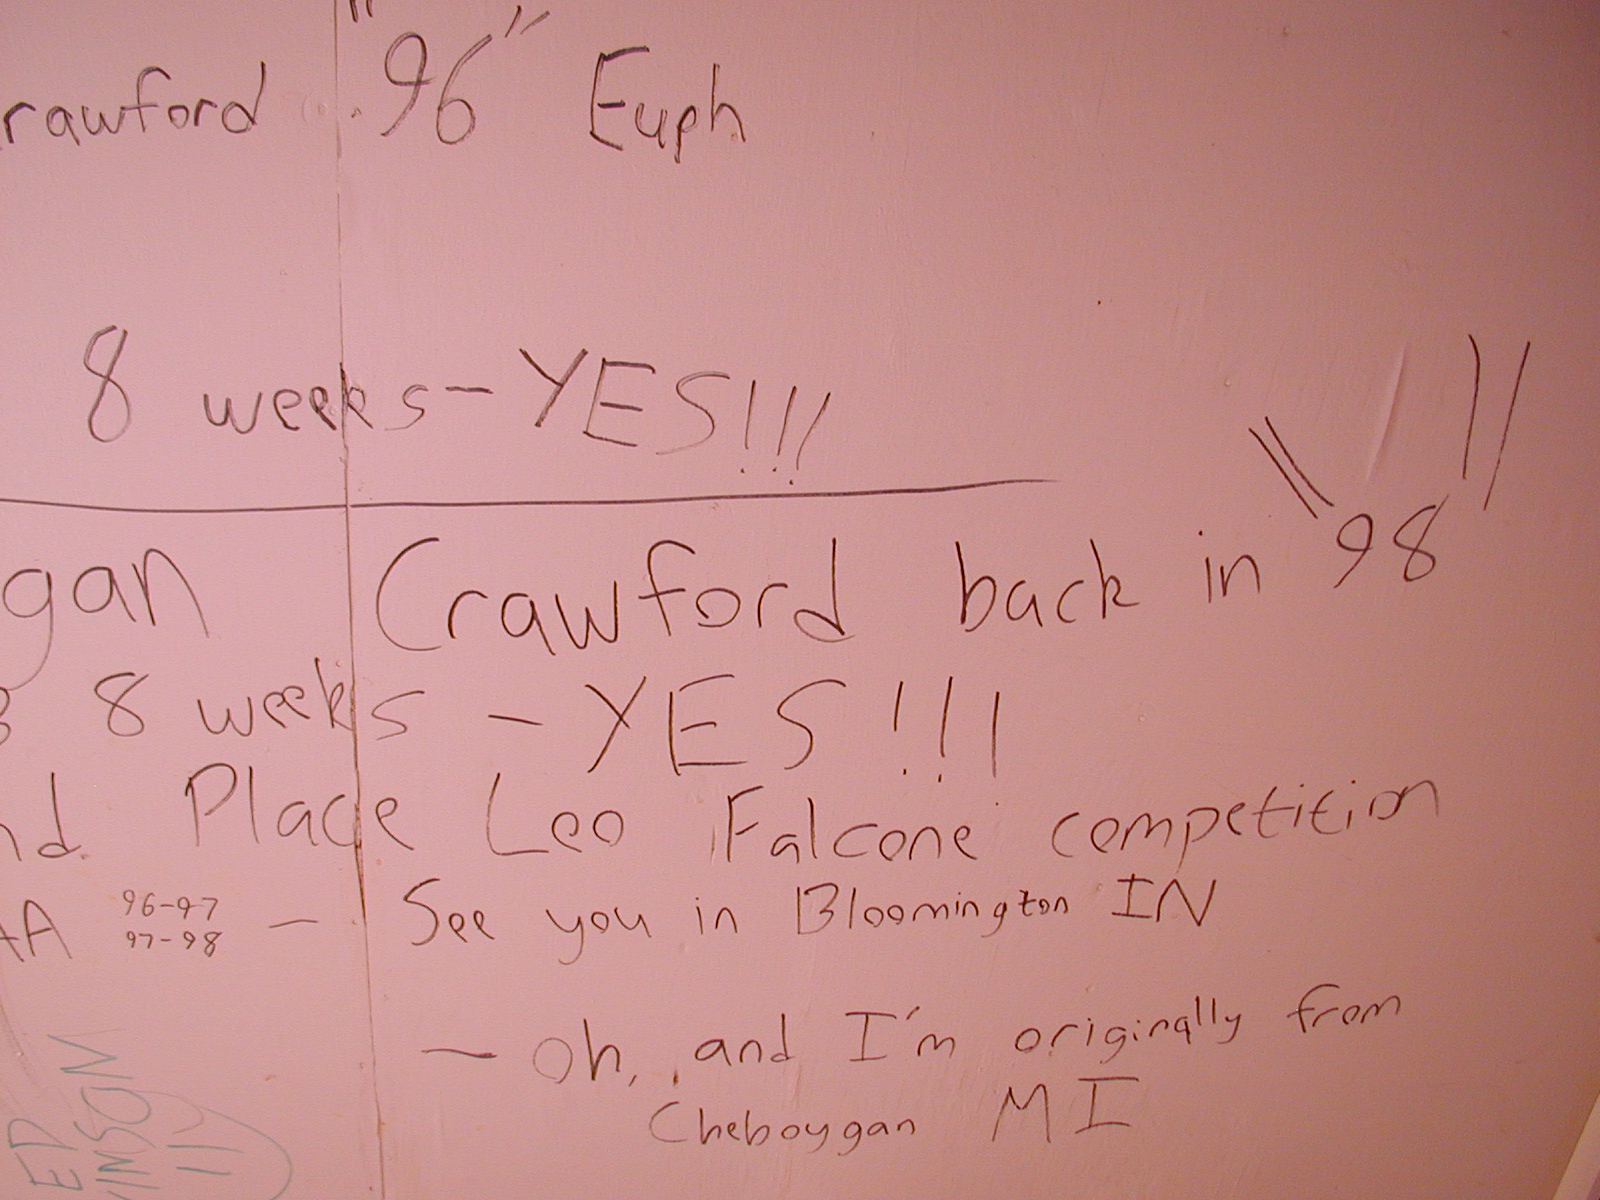 rawford "96" Euph
8 weeks - YES!!!
gan Crawford back in "98"
8 weeks - YES!!!
nd Place Leo Falcone competition
AA 96-97 97-98 - See you in Bloomington IN
- oh, and I'm originally from
Cheboygan MI
ED
VINSON
11